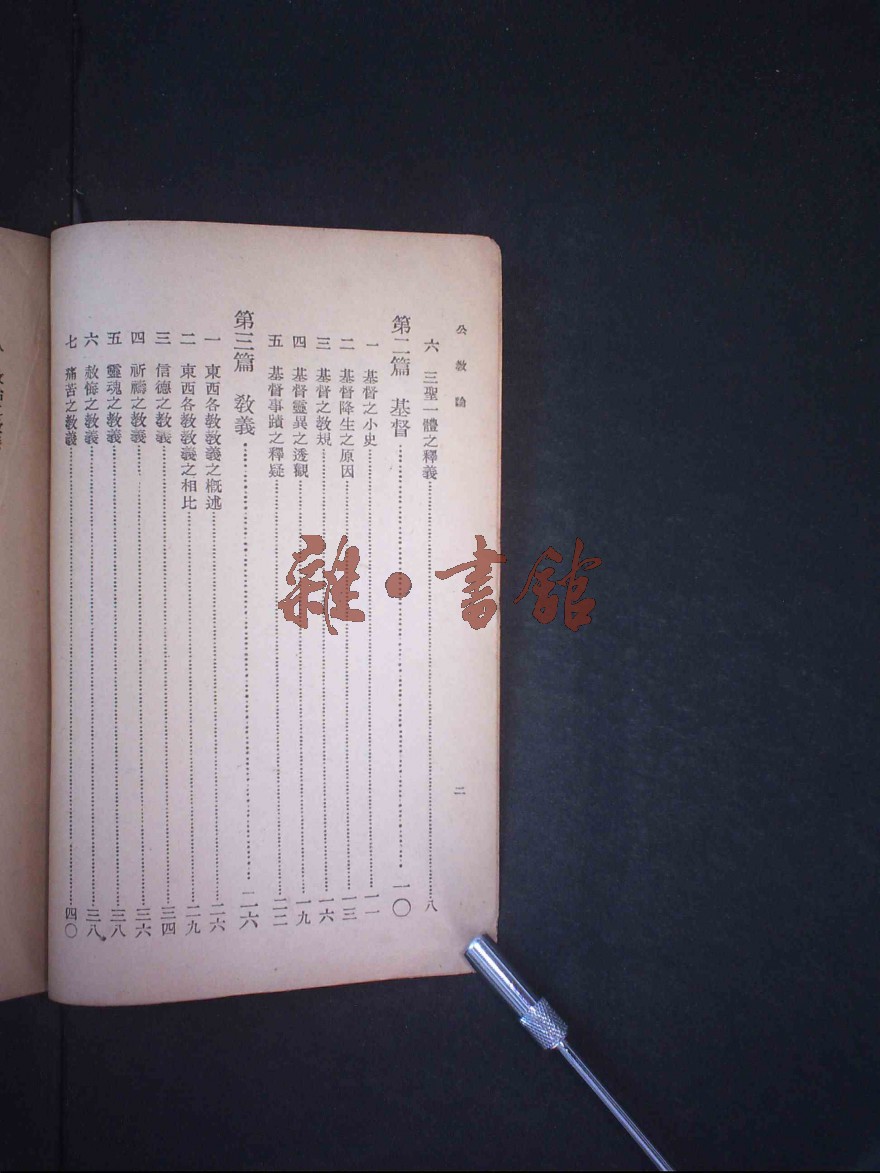 公敎論
二
六 三聖一體之釋義 八
第二篇 基督 一〇
一 基督之小史 一一
二 基督降生之原因 一三
三 基督之敎規 一六
四 基督靈異之透觀 一九
五 基督事蹟之釋疑 二二
第三篇 敎義 二六
一 東西各敎敎義之槪述 二六
二 東西各敎敎義之相比 二九
三 信德之敎義 三四
四 祈禱之敎義 三六
五 靈魂之敎義 三八
六 赦悔之敎義 三八
七 痛苦之敎義 四〇
雜·書館